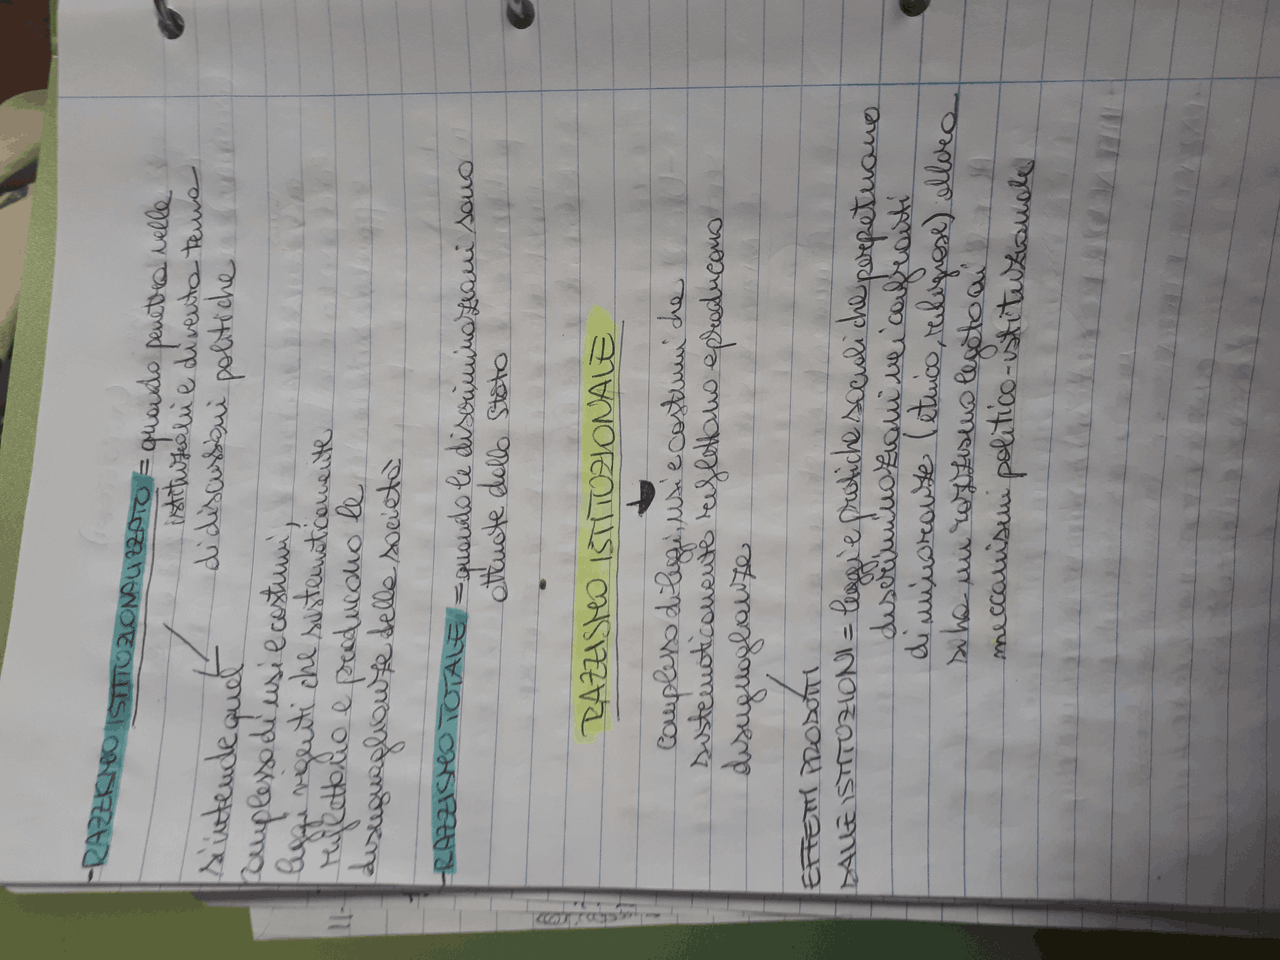 - RAZZISMO ISTITUZIONALIZZATO = quando penetra nelle
istituzioni e diventa tema
di discussioni politiche
si intende quel
complesso di usi e costumi,
leggi vigenti che sistematicamente
riflettono e producono le
disuguaglianze della società
- RAZZISMO TOTALE = quando le discriminazioni sono
attuate dallo stato
RAZZISMO ISTITUZIONALE
complesso di leggi, usi e costumi che
sistematicamente riflettono e producono
disuguaglianze
EFFETTI PRODOTTI
DALLE ISTITUZIONI = leggi e pratiche sociali che perpetuano
discriminazioni nei confronti
di minoranze (etnico, religiose) allora
si ha un razzismo legato ai
meccanismi politico-istituzionale
11-